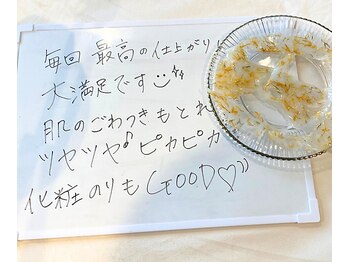 毎回 最高の仕上がり
大満足です
肌のごわつきもとれ
ツヤツヤ♪ピカピカ
化粧のりもGOOD♡))